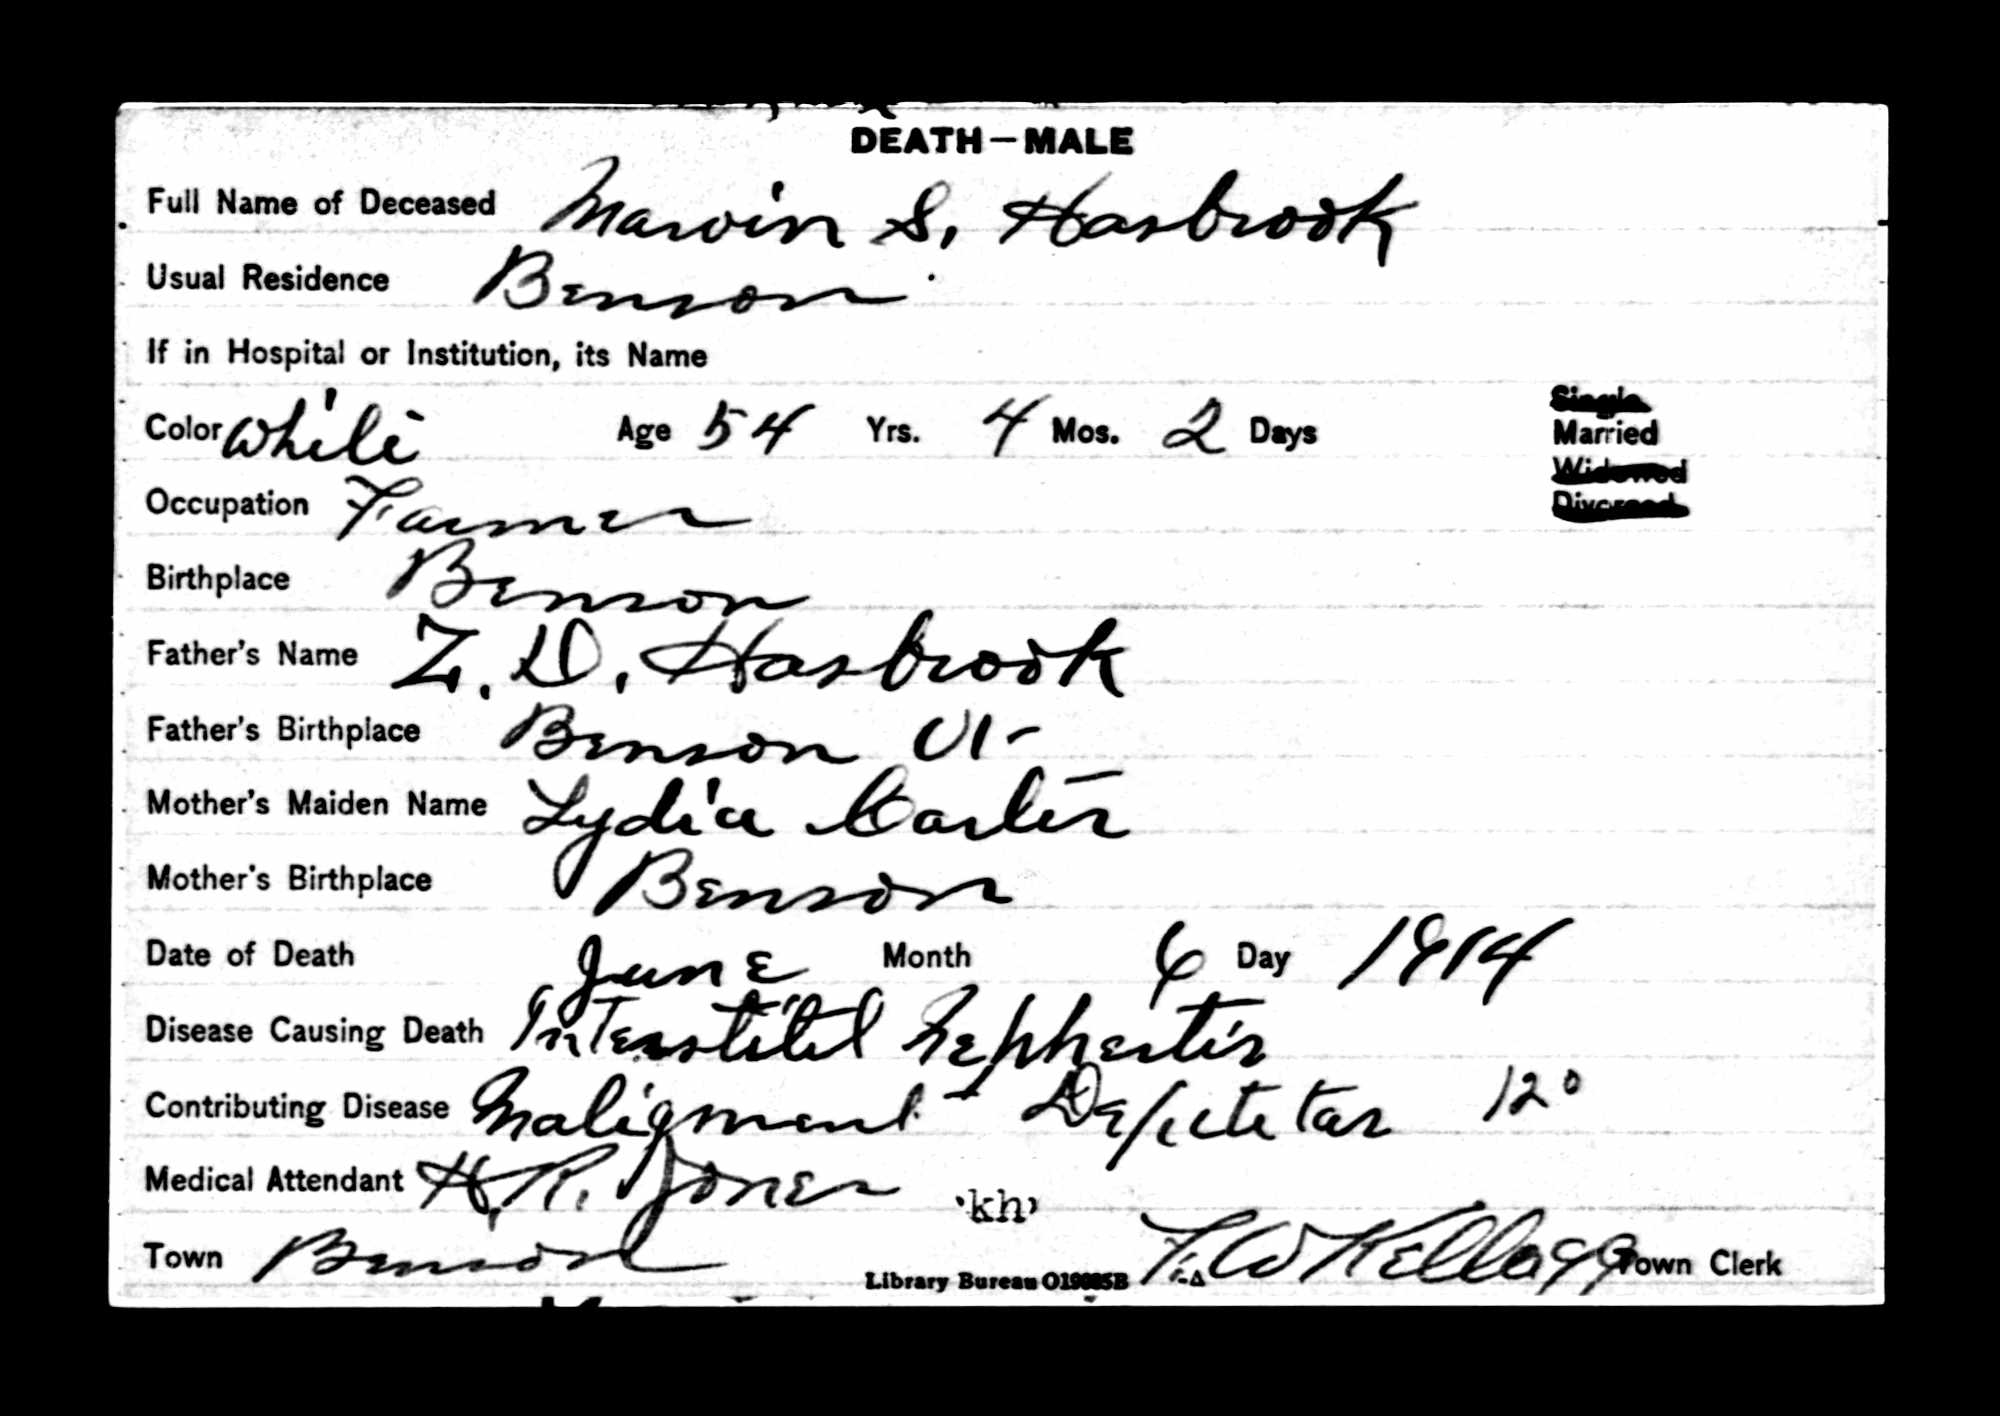 DEATH—MALE
Full Name of Deceased Marvin S. Hasbrook
Usual Residence Benson
If in Hospital or Institution, its Name
Color White Age 54 Yrs. 4 Mos. 2 Days Single
Married
Widowed
Occupation Farmer Divorced
Birthplace Benson
Father's Name Z. D. Hasbrook
Father's Birthplace Benson Vt
Mother's Maiden Name Lydia Carter
Mother's Birthplace Benson
Date of Death June Month 6 Day 1914
Disease Causing Death Interstitil Nephertis
Contributing Disease Malignant
Medical Attendant H. R. Jones 'kh'
Town Benson Library Bureau F. W Kellogg Town Clerk